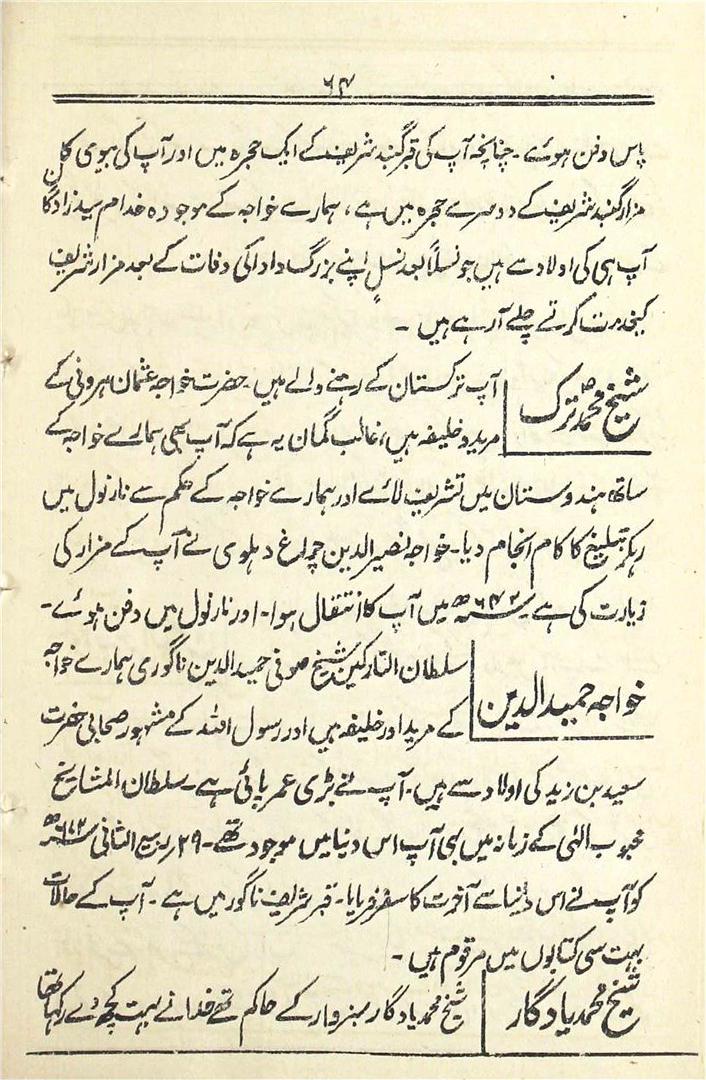 ۶۴
پاس دفن ہوئے ۔ چنانچہ آپ کی قبر گنبد شریف کے ایک حجرہ میں اور آپ کی بیوی کا
مزار گنبد شریف کے دوسرے حجرہ میں ہے ، ہمارے خواجہ کے موجودہ خدام سیدزادگان
آپ ہی کی اولاد سے ہیں جو نسلاً بعد نسلٍ اپنے بزرگ دادا کی وفات کے بعد مزار شریف
کیخدمت کرتے چلے آرہے ہیں ۔
شیخ محمد ترک
آپ ترکستان کے رہنے والے ہیں ۔ حضرت خواجہ عثمان ہرونی کے
مرید و خلیفہ ہیں ، غالب گمان یہ ہے کہ آپ بھی ہمارے خواجہ کے
ساتھ ہندوستان میں تشریف لائے اور ہمارے خواجہ کے حکم سے نارنول میں
رہکر تبلیغ کا کام انجام دیا ۔ خواجہ نصیر الدین چراغ دہلوی نے آپ کے مزار کی
زیارت کی ہے ۔ ۶۴۲ھ میں آپ کا انتقال ہوا ۔ اور نارنول میں دفن ہوئے ۔
خواجہ حمید الدین
سلطان التارکین شیخ صوفی حمید الدین ناگوری ہمارے خواجہ
کے مرید اور خلیفہ ہیں اور رسول اللہ کے مشہور صحابی حضرت
سعید بن زید کی اولاد سے ہیں ۔ آپ نے بڑی عمر پائی ہے ۔ سلطان المشایخ
محبوب الٰہی کے زمانہ میں بھی آپ اس دنیا میں موجود تھے ۔ ۲۹ ربیع الثانی ۶۷۳ھ
کو آپ نے اس دنیا سے آخرت کا سفر فرمایا ۔ قبر شریف ناگور میں ہے ۔ آپ کے حالات
بہت سی کتابوں میں مرقوم ہیں ۔
شیخ محمد یادگار
شیخ محمد یادگار سبزوار کے حاکم تھے خدا نے بہت کچھ دے رکھا تھا